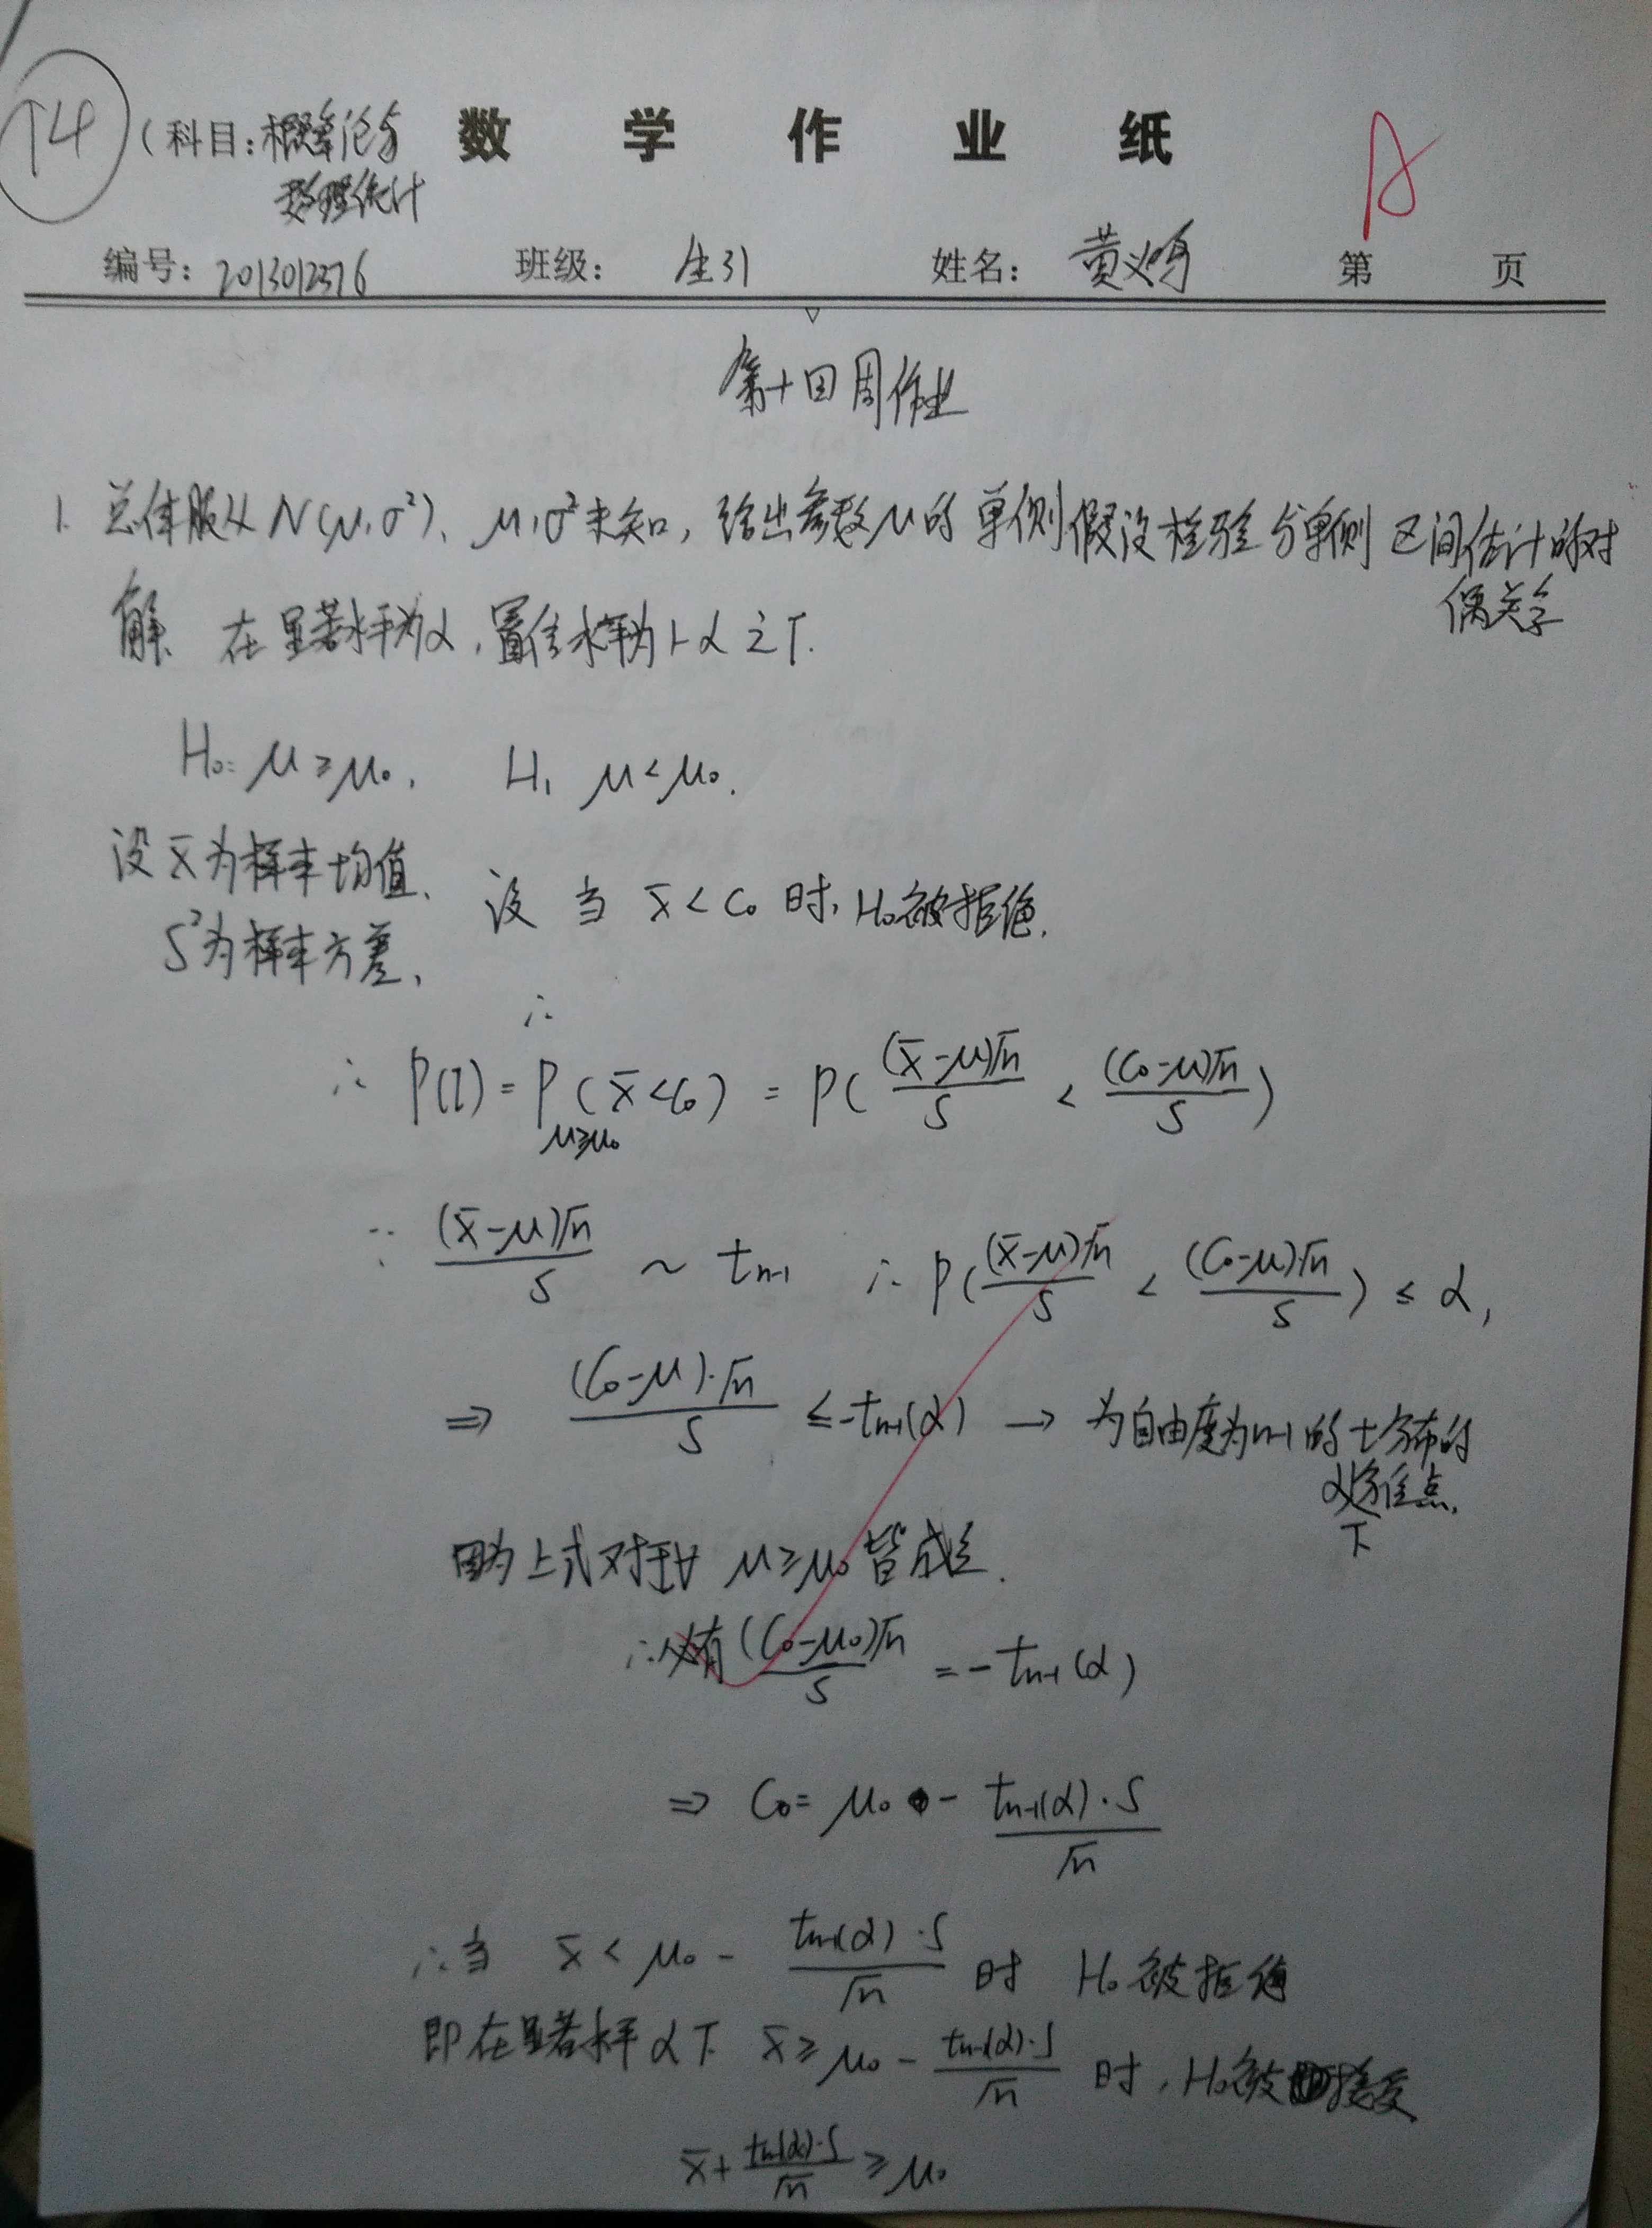 T4
(科目: 概率论与数理统计 数学作业纸 A
编号: 2013012376 班级: 生31 姓名: 黄 第 页
第十四周作业
1. 总体服从 N(μ,σ²), μ,σ²未知, 给出参数μ的单侧假设检验与单侧区间估计的对偶关系
解. 在显著水平为α, 置信水平为1-α之下.
H₀: μ≥μ₀. H₁ μ<μ₀.
设 x̄为样本均值. 设当 x̄<C₀ 时, H₀被拒绝.
S²为样本方差,
∴
∴ P(I) = P_{μ≥μ₀}(x̄<C₀) = P( (x̄-μ)√n / S < (C₀-μ)√n / S )
∵ (x̄-μ)√n / S ~ t_{n-1} ∴ P( (x̄-μ)·√n / S < (C₀-μ)·√n / S ) ≤ α,
⇒ (C₀-μ)·√n / S ≤ -t_{n-1}(α) → 为自由度为n-1的t分布的
下α分位点.
因为上式对于∀ μ≥μ₀ 皆成立.
∴必有 (C₀-μ₀)√n / S = -t_{n-1}(α)
⇒ C₀ = μ₀ - t_{n-1}(α)·S / √n
∴当 x̄ < μ₀ - t_{n-1}(α)·S / √n 时 H₀被拒绝
即在显著水平α下 x̄ ≥ μ₀ - t_{n-1}(α)·S / √n 时, H₀被接受
x̄ + t_{n-1}(α)·S / √n ≥ μ₀